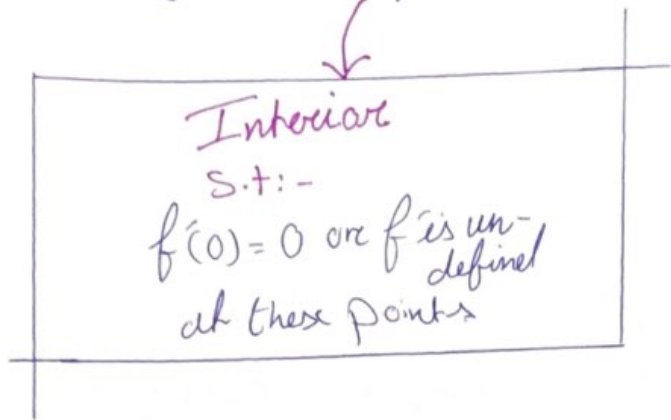 Interior
s.t:-
f'(0) = 0 or f' is un-
defined
at these points